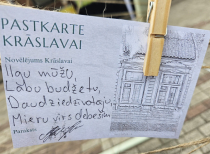 PASTKARTE
KRĀSLAVAI
Novēlējums Krāslavai
Ilgu mūžu,
Labu budžetu,
Daudz iedzīvotāju,
Mieru virs debesīm
Paraksts